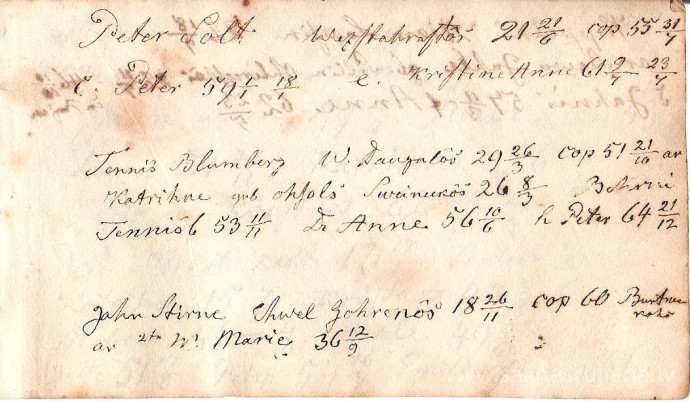 Peter Solt Wezstahrastös 21 21/6 cop 55 31/7
C: Peter 59 1/1 18/1 e. Kristine Anne 61 9/7 23/7
Tennis Blumberg W. Daugulös 29 26/3 cop 51 21/10 ar
Katrihne geb ohsols Swainukös 26 8/3 Behrni
Tennis 6 53 11/11 D: Anne 56 10/6 h Peter 64 21/12
Jahn Stirne Gohrenös 18 26/11 cop 60
ar 2te W. Marie 36 12/9